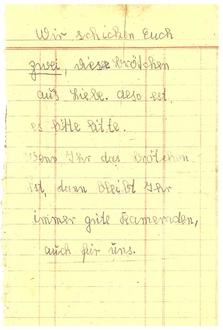 Wir schicken Euch
zwei, diese Brötchen
aus Liebe. also est
es bitte bitte.
Wenn Ihr das Brötchen
ist, dann bleibt Ihr
immer gute Kameraden,
auch für uns.